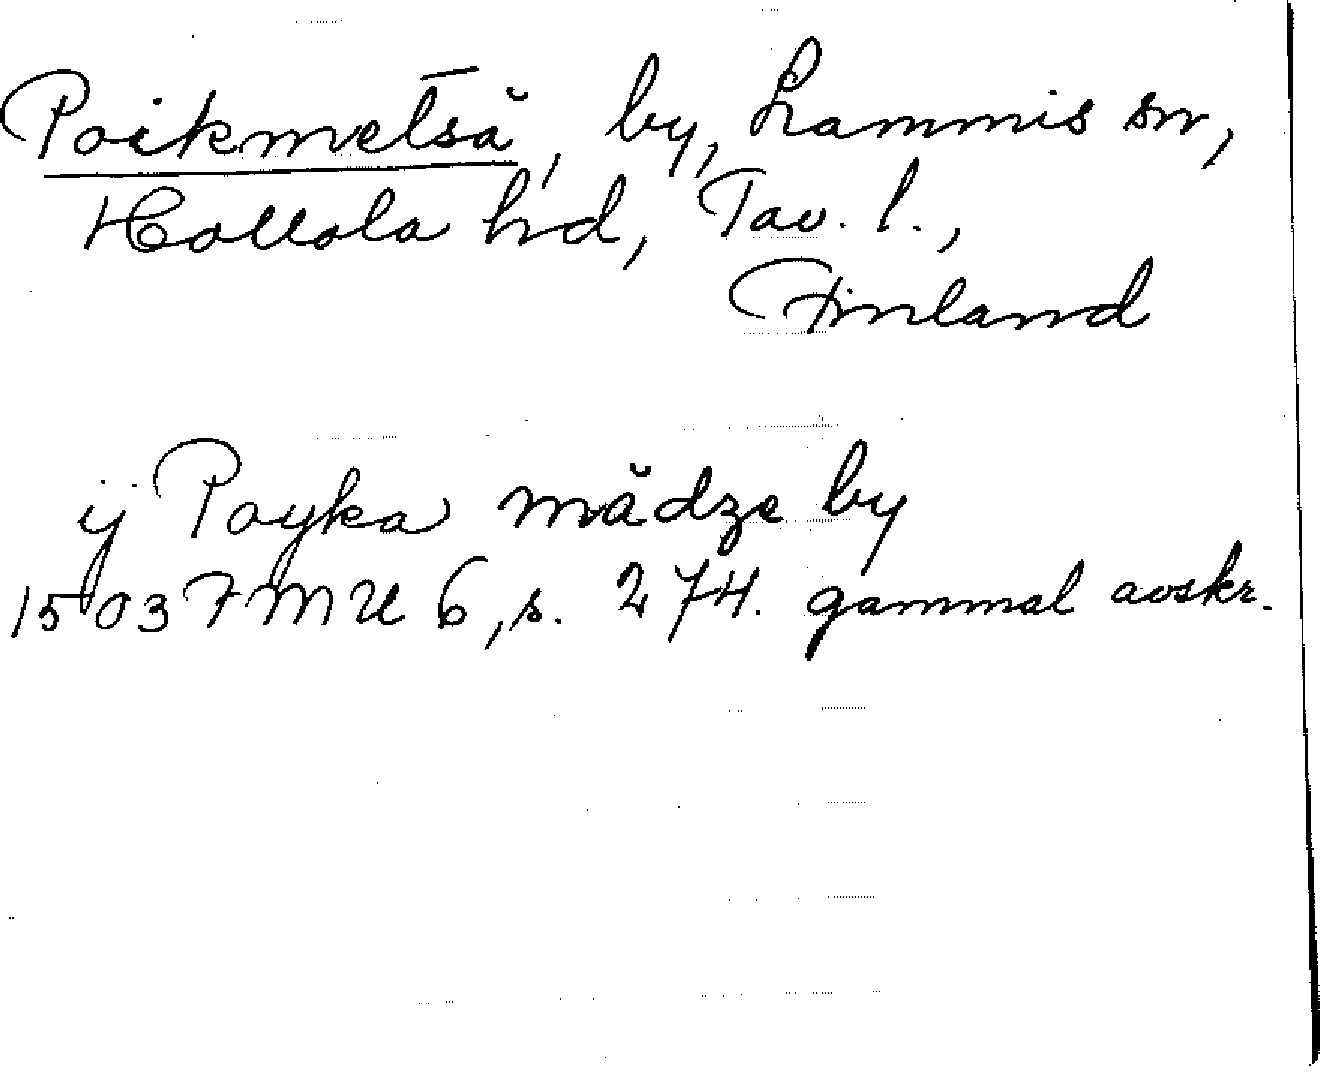 Poikmetsä, by, Lammis sn,
Hollola hd, Tav. l.,
Finland
ÿ Poyka mädze by
1503 FMU 6, s. 274. gammal avskr.